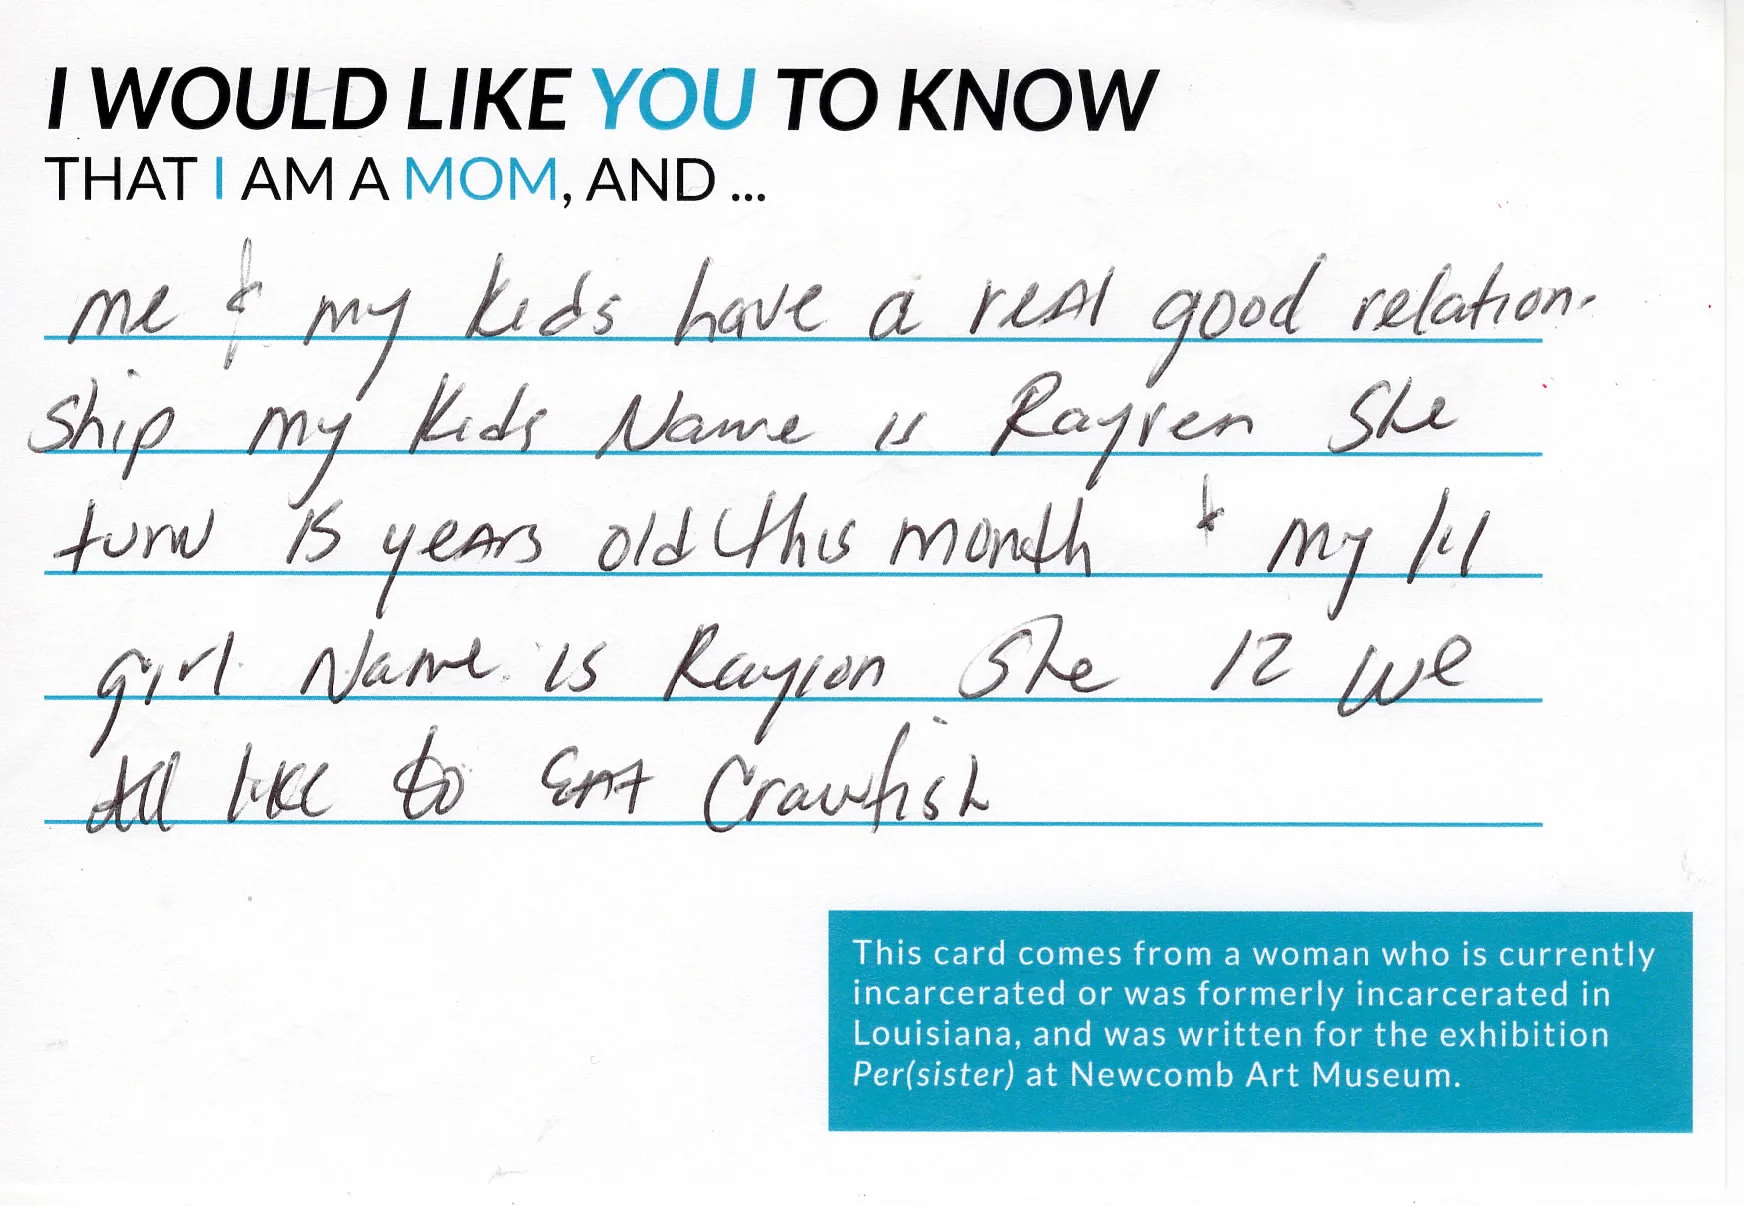 I WOULD LIKE YOU TO KNOW
THAT I AM A MOM, AND ...
me & my kids have a real good relation-
ship my kids Name is Rayren She
turn 15 years old this month & my lil
girl Name is Rayion She 12 we
all like to EAT Crawfish
This card comes from a woman who is currently
incarcerated or was formerly incarcerated in
Louisiana, and was written for the exhibition
Per(sister) at Newcomb Art Museum.